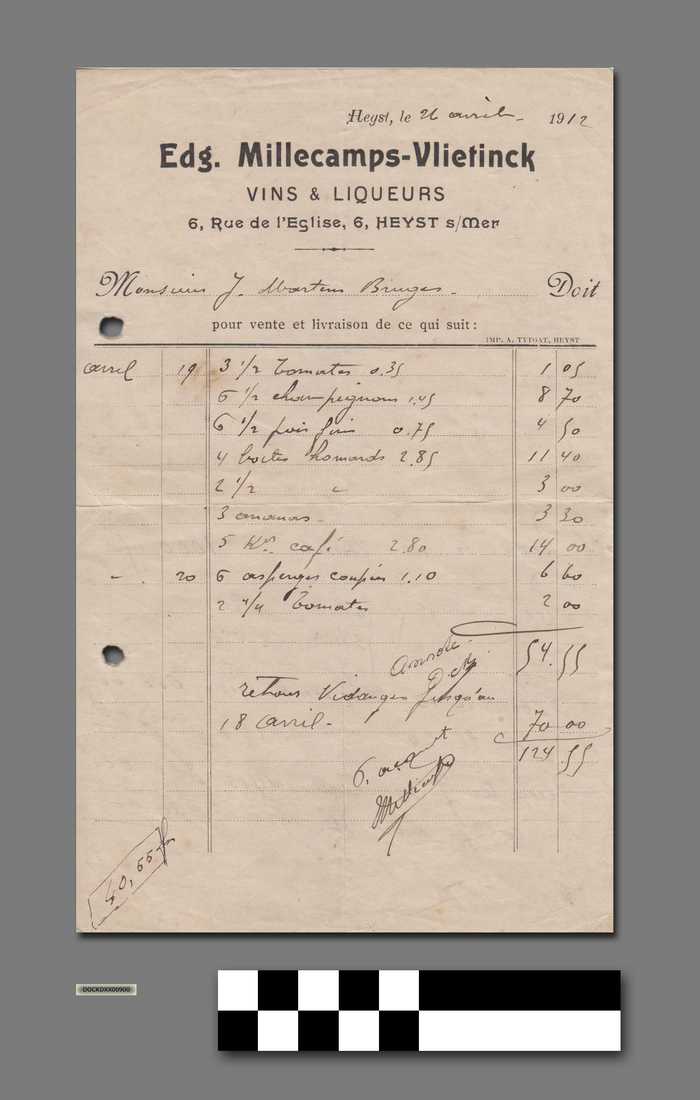 Heyst, le 26 avril 1912
Edg. Millecamps-Vlietinck
VINS & LIQUEURS
6, Rue de l'Eglise, 6, HEYST s/Mer
Monsieur J. Martens Bruges Doit
pour vente et livraison de ce qui suit:
IMP. A. TYTGAT, HEYST
avril 19 3 1/2 Tomates 0.35 1 05
6 1/2 champignons 1.45 8 70
6 1/2 pois fins 0.75 4 50
4 boites homards 2.85 11 40
2 1/2 " 3 00
3 ananas 3 30
5 Kos café 2.80 14 00
" 20 6 asperges coupées 1.10 6 60
2 4/4 Tomates 2 00
54.55
retour Vidanges jusqu'au
18 avril - 70 00
124 55
acquit
Millecamps
DOCKDXX00900